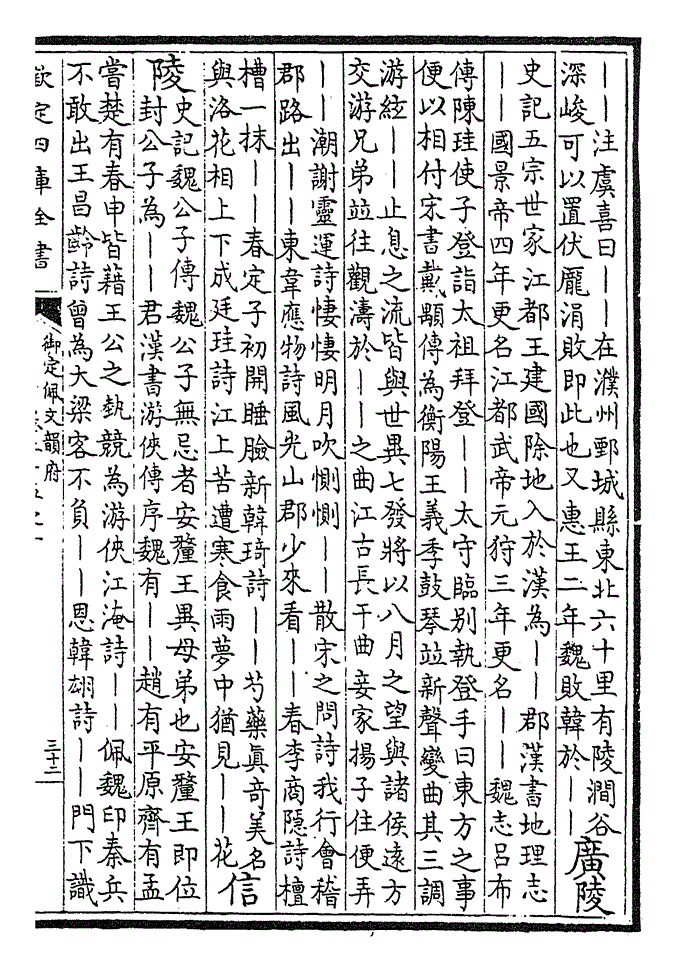 ——注虞喜曰——在濮州鄄城縣東北六十里有陵澗谷
深峻可以置伏龎涓敗即此也又惠王二年魏敗韓於——
廣陵
史記五宗世家江都王建國除地入於漢為——郡漢書地理志
——國景帝四年更名江都武帝元狩三年更名——魏志呂布
傳陳珪使子登詣太祖拜登——太守臨別執登手曰東方之事
便以相付宋書戴顒傳為衡陽王義季鼓琴竝新聲變曲其三調
游絃——止息之流皆與世異七發將以八月之望與諸侯遠方
交游兄弟竝往觀濤於——之曲江古長干曲妾家揚子住便弄
——潮謝靈運詩悽悽明月吹惻惻——散宋之問詩我行會稽
郡路出——東韋應物詩風光山郡少來看——春李商隱詩檀
槽一抹——春定子初開睡臉新韓琦詩——芍藥真奇美名
與洛花相上下成廷珪詩江上苦遭寒食雨夢中猶見——花
信
陵
史記魏公子傳魏公子無忌者安釐王異母弟也安釐王即位
封公子為——君漢書游俠傳序魏有——趙有平原齊有孟
嘗楚有春申皆藉王公之埶競為游俠江淹詩——佩魏印秦兵
不敢出王昌齡詩曾為大梁客不負——恩韓翃詩——門下識
欽定四庫全書
御定佩文韻府
三十二